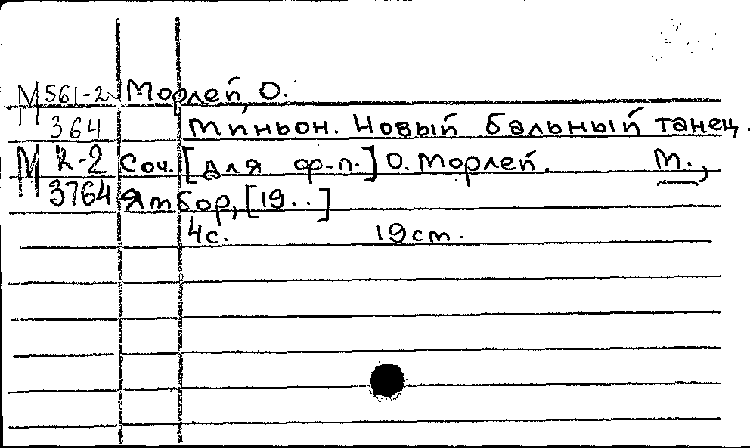 М 561-2 Морлей, О.
364 Миньон. Новый бальный танец.
М К-2 Соч. [для ф-п.] О. Морлей. М.,
3764 Ямбор, [19..]
4с. 19см.